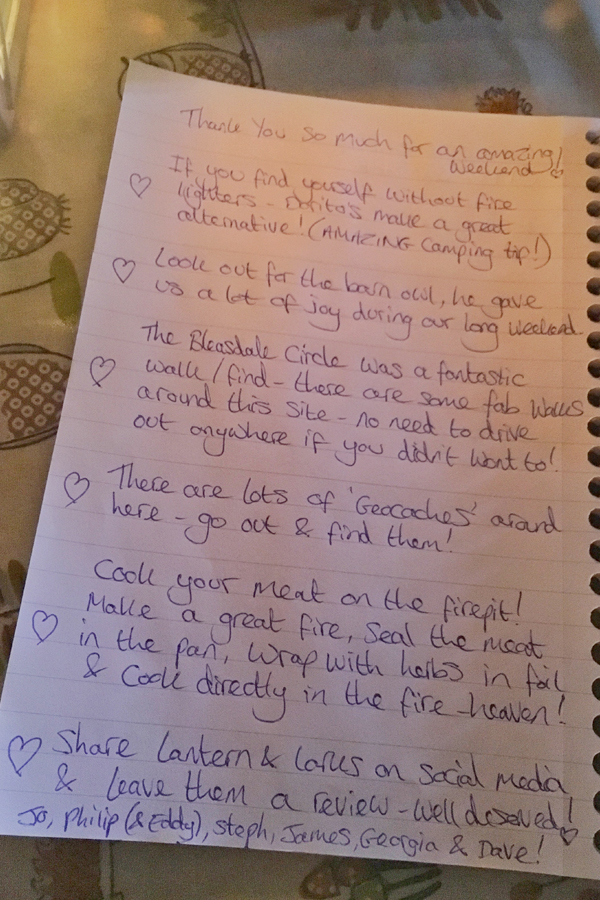 Thank You so much for an amazing!
Weekend
If you find yourself without fire
lighters - Dorito's make a great
alternative! (AMAZING Camping tip!)
Look out for the barn owl, he gave
us a lot of joy during our long weekend.
The Bleasdale Circle was a fantastic
walk/find - there are some fab walks
around this site - no need to drive
out anywhere if you didn't want to!
There are lots of 'Geocaches' around
here - go out & find them!
Cook your meat on the firepit!
Make a great fire, seal the meat
in the pan, wrap with herbs in foil
& cook directly in the fire - heaven!
Share Lantern & Larks on social media
& leave them a review - well deserved!
Jo, Philip (& Eddy), Steph, James, Georgia & Dave!